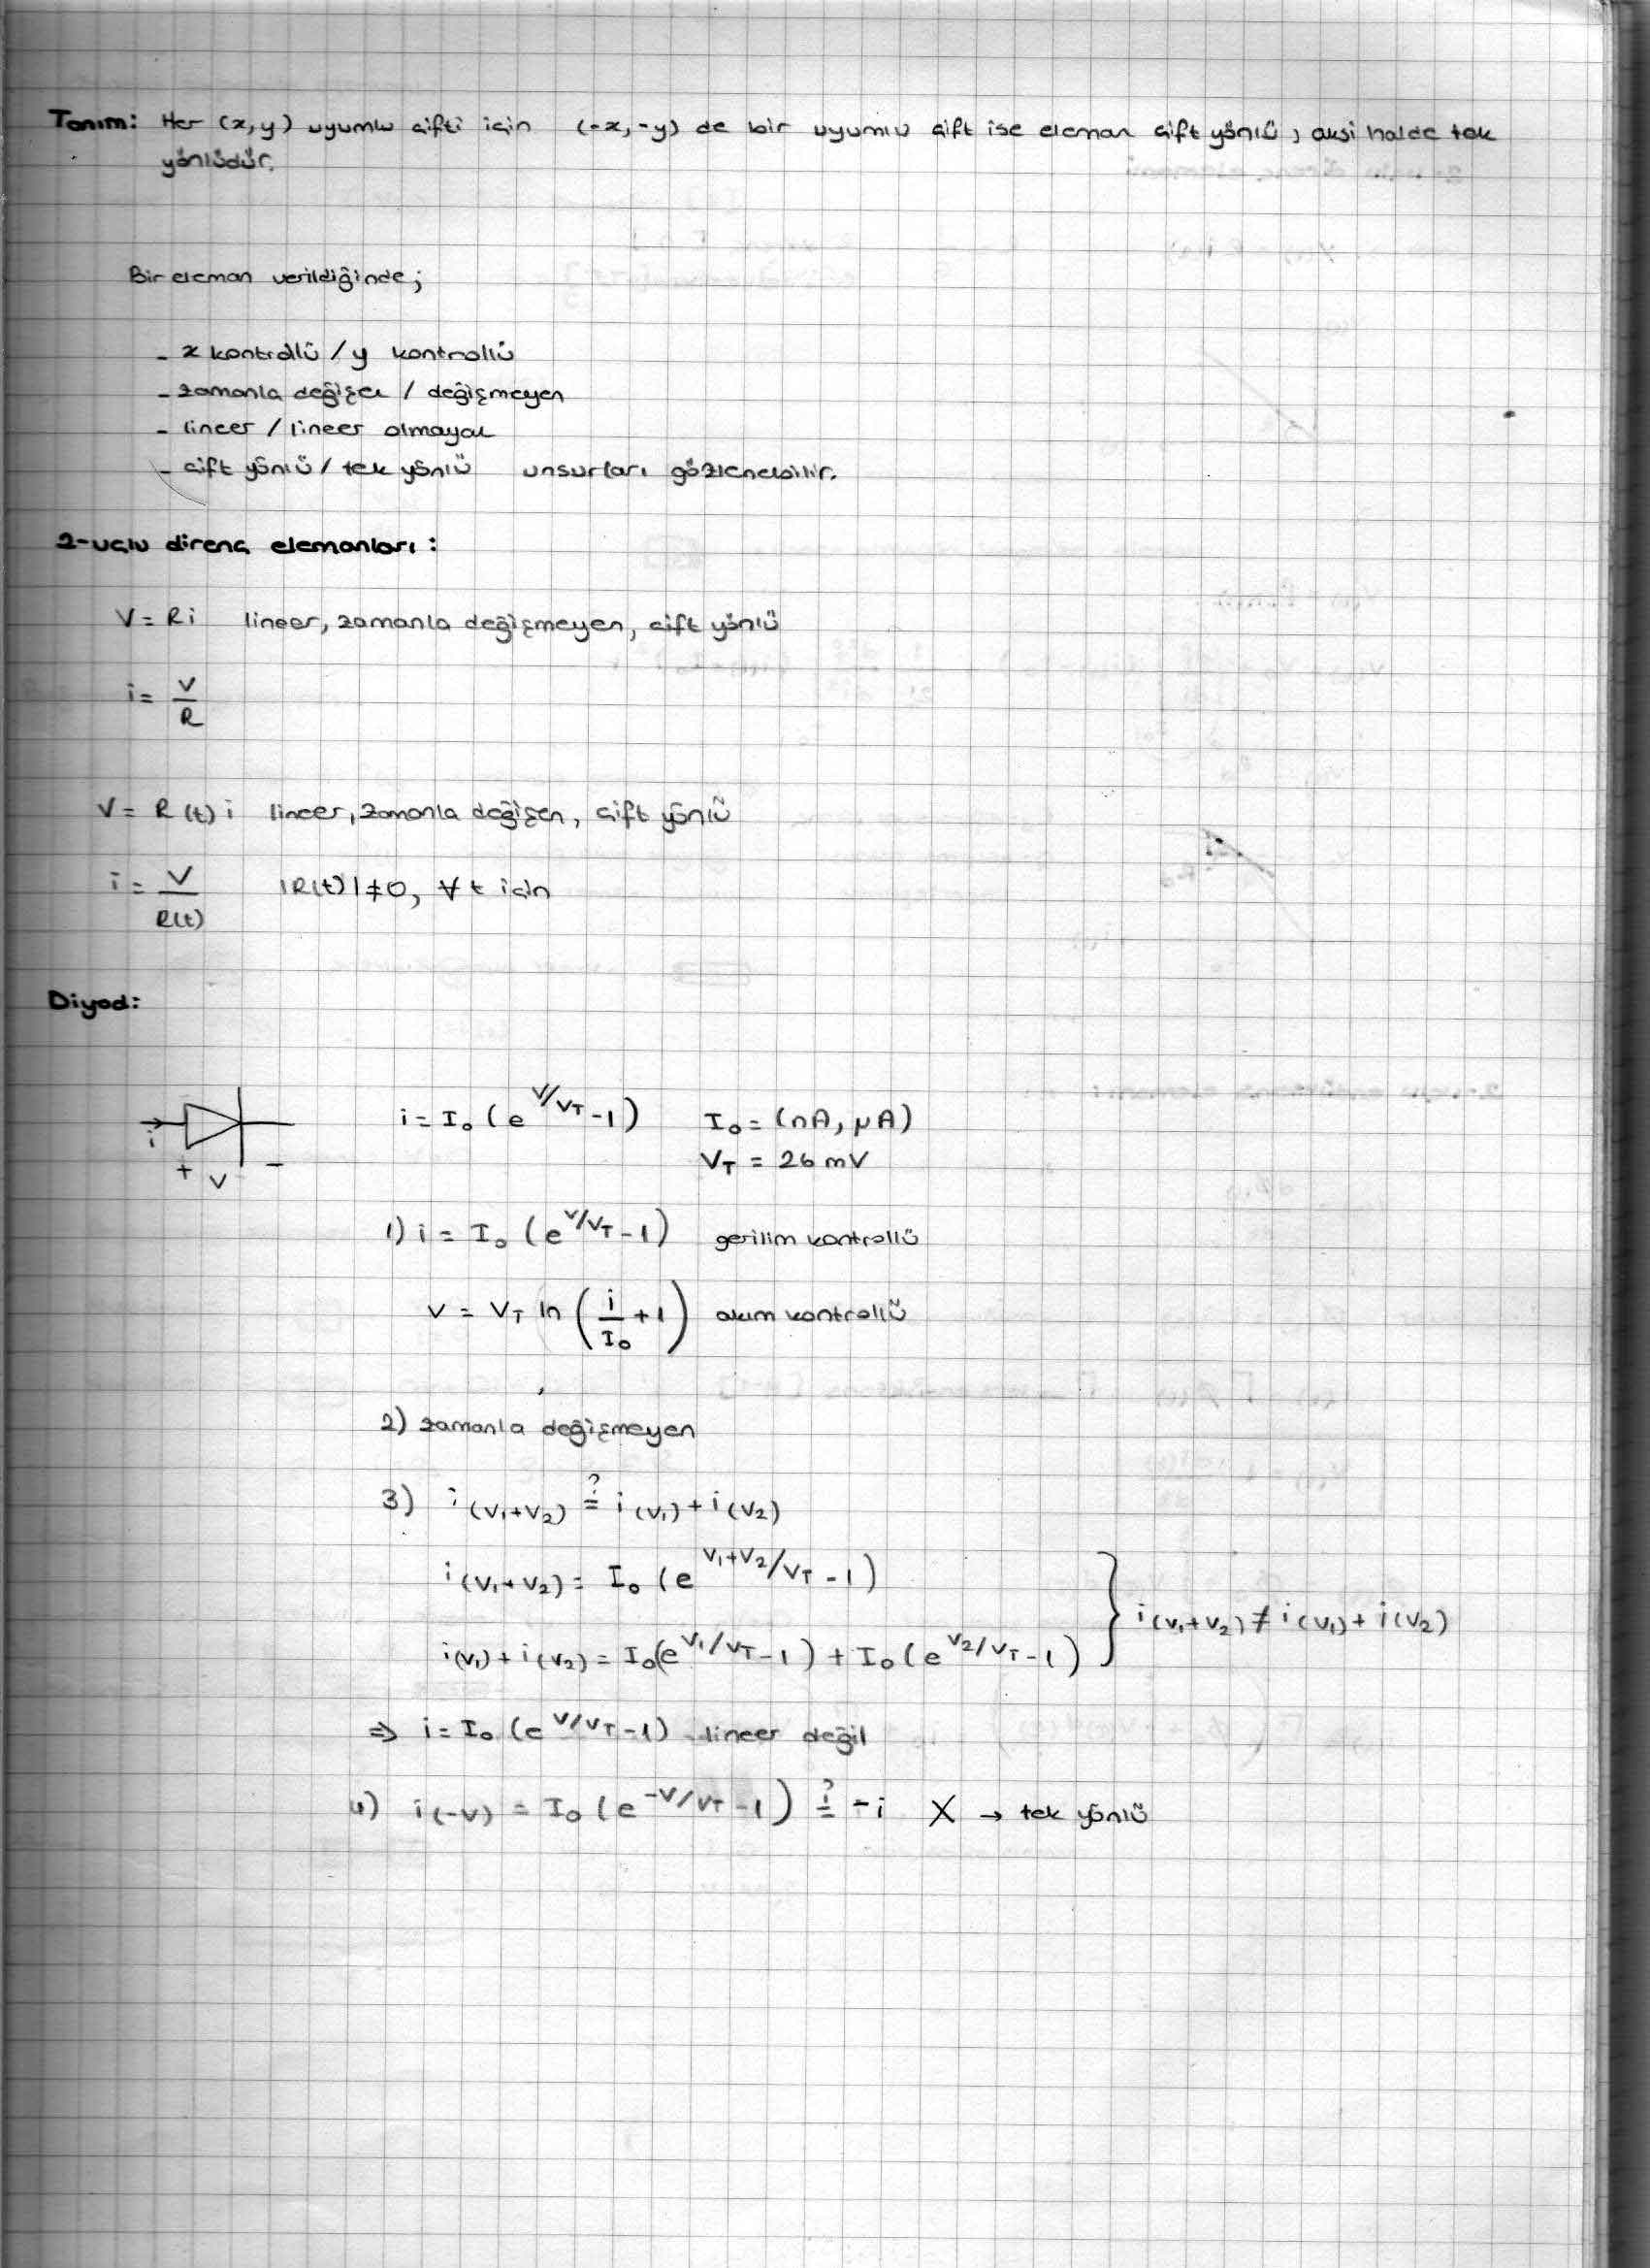 Tanım: Her (x,y) uyumlu çifti için (-x,-y) de bir uyumlu çift ise eleman çift yönlü, aksi halde tek
yönlüdür.
Bir eleman verildiğinde;
- x kontrollü / y kontrollü
- zamanla değişen / değişmeyen
- lineer / lineer olmayan
- çift yönlü / tek yönlü unsurları gözlenebilir.
2-uçlu direnç elemanları:
V = Ri lineer, zamanla değişmeyen, çift yönlü
i = V/R
V = R(t) i lineer, zamanla değişen, çift yönlü
i = V/R(t) |R(t)| ≠ 0, ∀ t için
Diyod:
i + V -
i = I₀ (e^(V/V_T) - 1) I₀ = (nA, μA)
V_T = 26 mV
1) i = I₀ (e^(V/V_T) - 1) gerilim kontrollü
V = V_T ln (i/I₀ + 1) akım kontrollü
2) zamanla değişmeyen
3) i(V₁+V₂) ≟ i(V₁) + i(V₂)
i(V₁+V₂) = I₀ (e^(V₁+V₂/V_T) - 1)
i(V₁+V₂) ≠ i(V₁) + i(V₂)
i(V₁) + i(V₂) = I₀(e^(V₁/V_T) - 1) + I₀(e^(V₂/V_T) - 1)
⇒ i = I₀ (e^(V/V_T) - 1) lineer değil
4) i(-V) = I₀ (e^(-V/V_T) - 1) ≟ -i X → tek yönlü